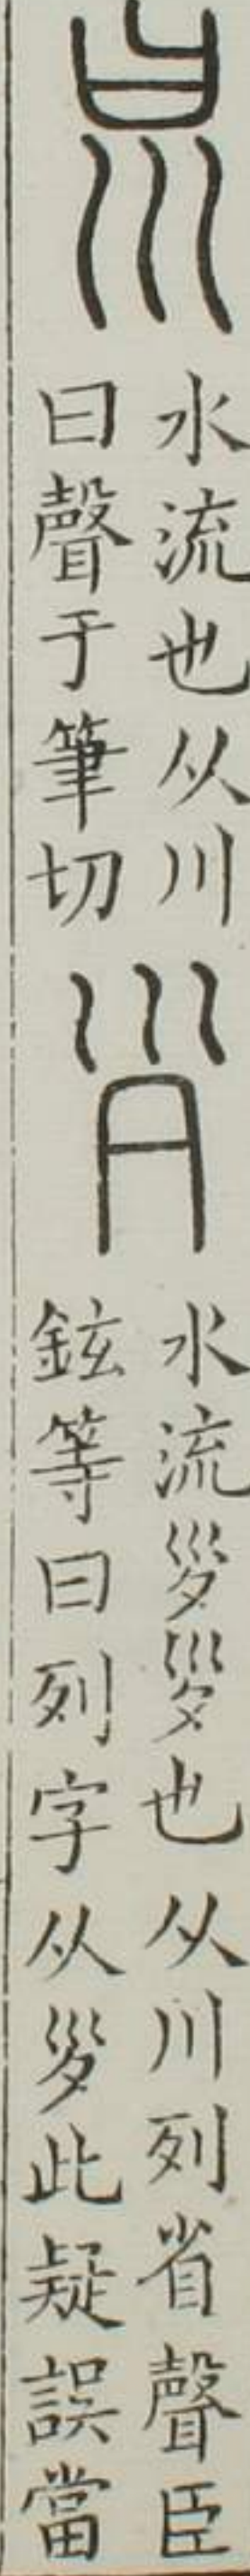 水流也从川
曰聲于筆切
水流𡿪𡿪也从川列省聲臣
鉉等曰列字从𡿪此疑誤當